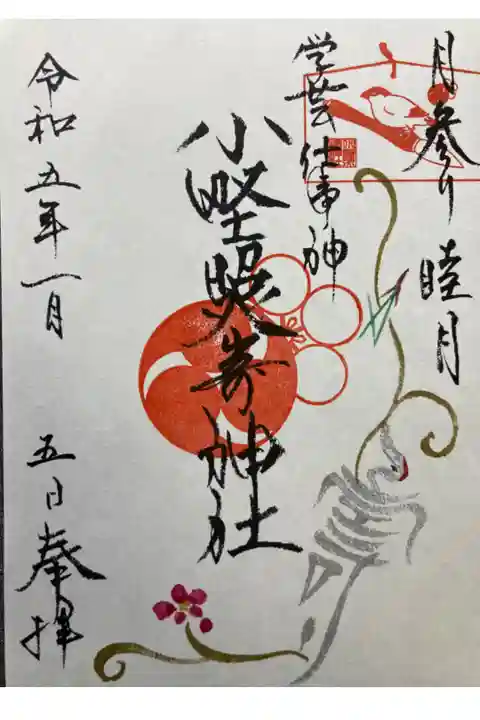 月参り 睦月
学芸 仕事 神
小野照崎神社
令和五年一月 五日 奉拝